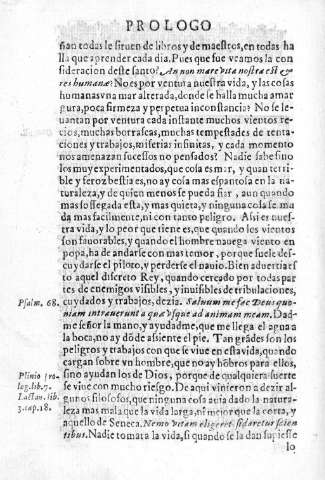 PROLOGO
ñan todas le siruen de libros y de maestros, en todas ha
lla que aprender cada dia. Pues que fue veamos la con
sideracion deste santo? An non mare vita nostra est &
res humanæ? No es por ventura nuestra vida, y las cosas
humanas vna mar alterada, donde se halla mucha amar
gura, poca firmeza y perpetua inconstancia? No se le-
uantan por ventura cada instante muchos vientos re-
cios, muchas borrascas, muchas tempestades de tenta-
ciones y trabajos, miserias infinitas, y cada momento
nos amenazan sucessos no pensados? Nadie sabe sino
los muy experimentados, que cosa es mar, y quan terri-
ble y feroz bestia es, no ay cosa mas espantosa en la na-
turaleza, y de quien menos se pueda fiar, aun quando
mas sossegada està, y mas quieta, y ninguna cosa se mu
da mas facilmente, ni con tanto peligro. Assi es nues-
tra vida, y lo peor que tiene es, que quando los vientos
son fauorables, y quando el hombre nauega viento en
popa, ha de andarse con mas temor, porque suele des-
cuydarse el piloto, y perderse el nauio. Bien aduertia es
to aquel discreto Rey, quando cercado por todas par
tes de enemigos visibles, y inuisibles de tribulaciones,
Psalm. 68. cuydados y trabajos, dezia. Saluum me fac Deus quo-
niam intrauerunt aquæ vsque ad animam meam. Dad-
me señor la mano, y ayudadme, que me llega el agua a
la boca, no ay dõde assiente el pie. Tan grãdes son los
peligros y trabajos con que se viue en esta vida, quando
cargan sobre vn hombre, que no ay hõbros para ellos,
Plinio pro sino ayudan los de Dios, porque de qualquiera suerte
log. lib. 7. se viue con mucho riesgo. De aqui vinieron a dezir al-
Lactan. lib. gunos filosofos, que ninguna cosa auia dado la natura-
3. cap. 18. leza mas mala que la vida larga, ni mejor que la corta, y
aquello de Seneca. Nemo vitam eligeret si daretur scien
tibus. Nadie tomara la vida, si quando se la dan supiesse
lo